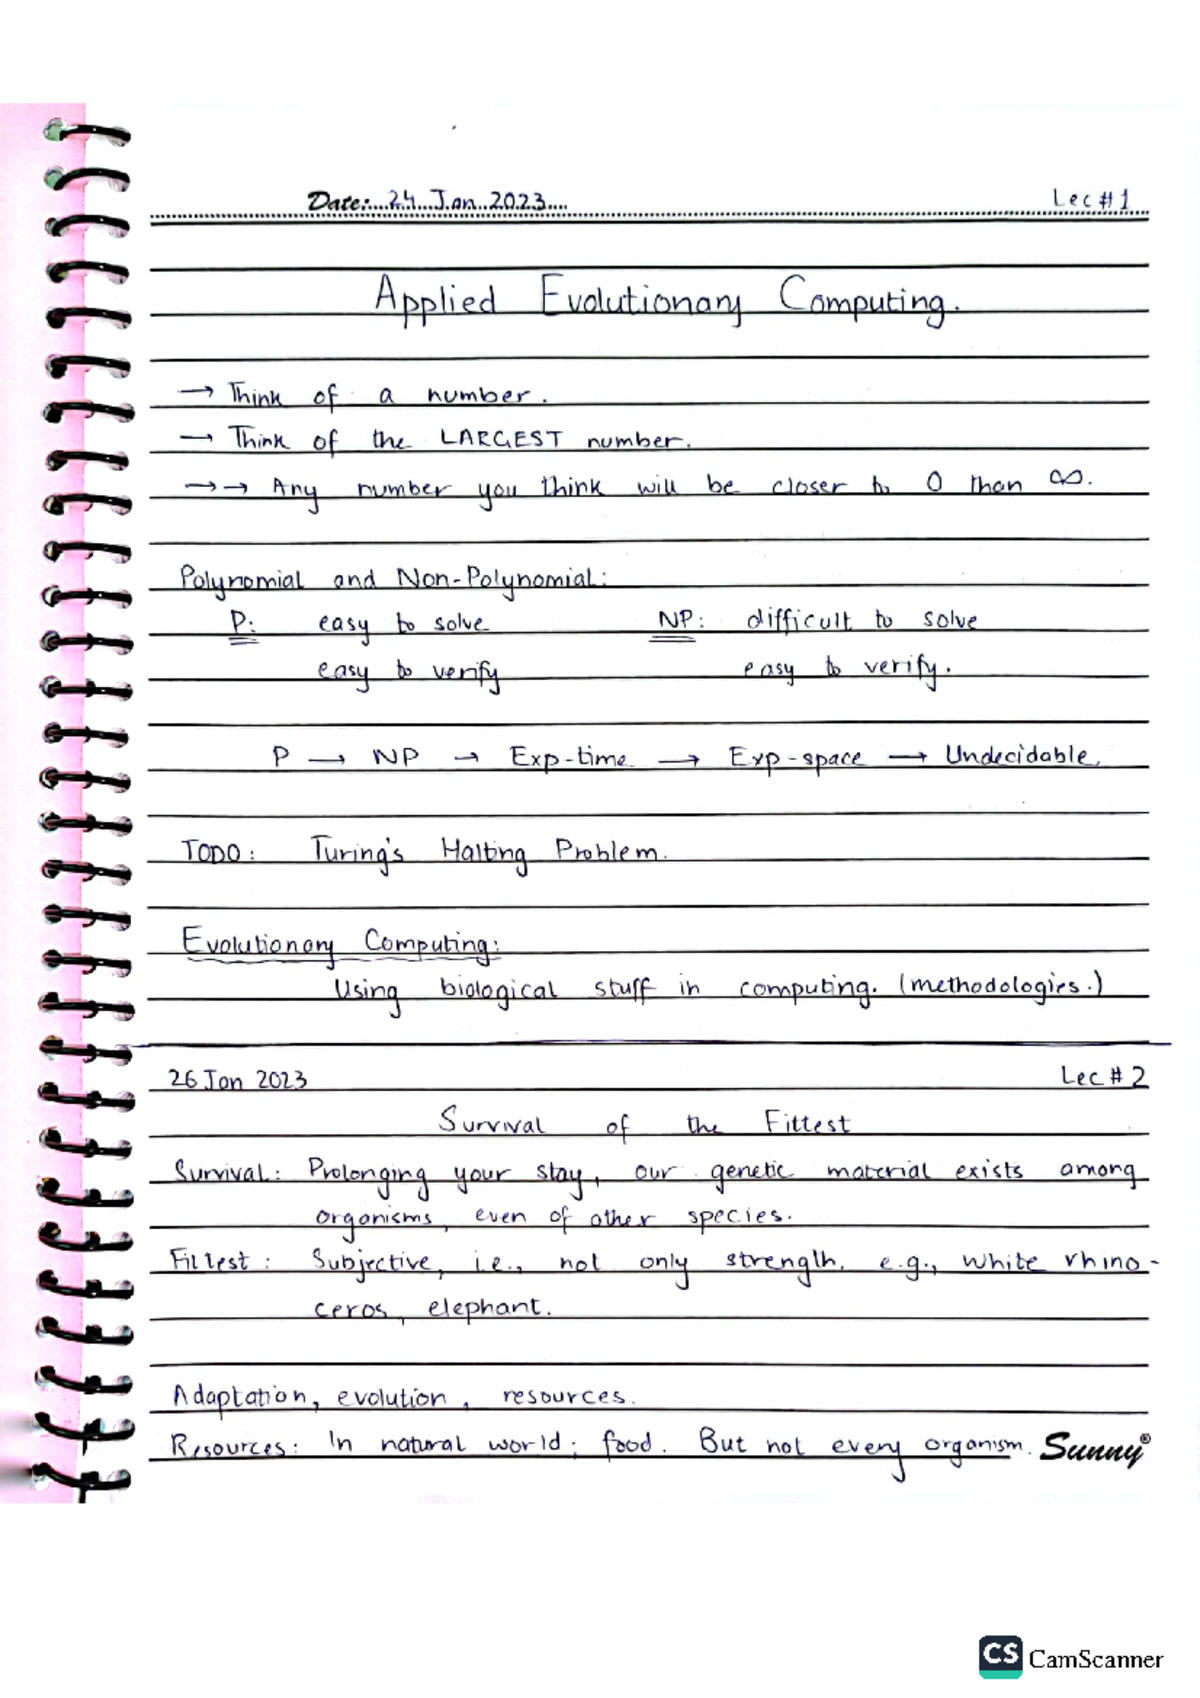 Date:...24...Jan...2023.... Lec # 1
Applied Evolutionary Computing.
→ Think of a number.
→ Think of the LARGEST number.
→→ Any number you think will be closer to 0 than ∞.
Polynomial and Non-Polynomial:
P: easy to solve NP: difficult to solve
easy to verify easy to verify.
P → NP → Exp-time → Exp-space → Undecidable.
TODO: Turing's Halting Problem.
Evolutionary Computing:
Using biological stuff in computing. (methodologies.)
26 Jan 2023 Lec # 2
Survival of the Fittest
Survival: Prolonging your stay, our genetic material exists among
organisms, even of other species.
Fittest: Subjective, i.e., not only strength. e.g., white rhino-
ceros, elephant.
Adaptation, evolution, resources.
Resources: In natural world; food. But not every organism. Sunny®
CS CamScanner